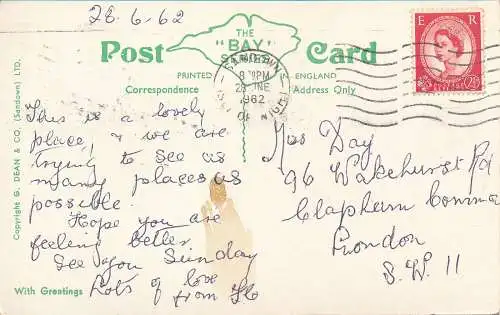 28.6.62
THE
"BAY"
SERIES
Post Card
PRINTED ENGLAND
Correspondence Address Only
SANDOWN
8 PM
28 JNE
1962
OF WIGHT
E R
This is a lovely
place, & we are
trying to see as
many places as
possible.
Hope you are
feeling better
See you Sunday
Lots of love
from Flo
Miss Day
96 Wakehurst Rd
Clapham Common
London
S.W. 11
With Greetings
Copyright G. DEAN & CO, (Sandown) LTD.